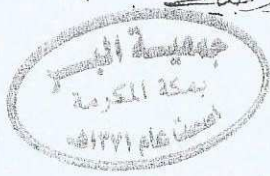 جمعية البر
بمكة المكرمة
أسست عام ١٣٧١هـ